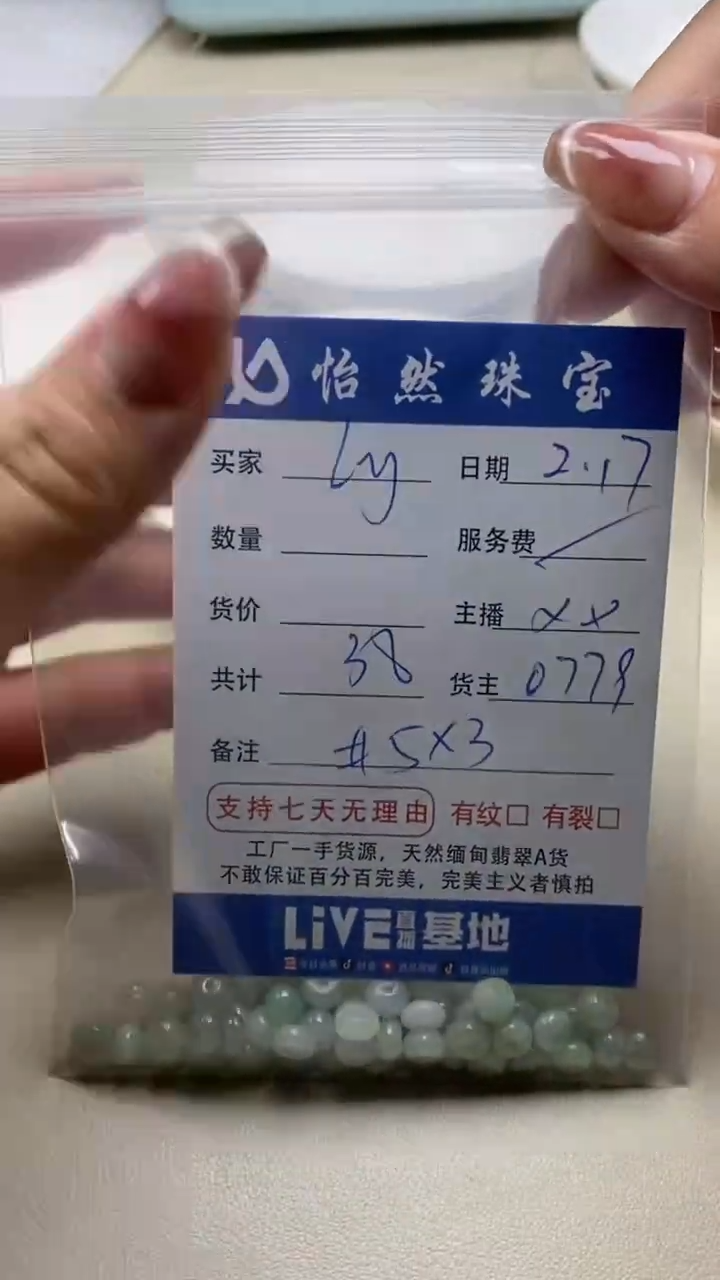 怡然珠宝
买家 Ly 日期 2.17
数量 服务费
货价 主播 xx
共计 38 货主 0779
备注 #5×3
支持七天无理由 有纹□ 有裂□
工厂一手货源，天然缅甸翡翠A货
不敢保证百分百完美，完美主义者慎拍
LiVE直播基地